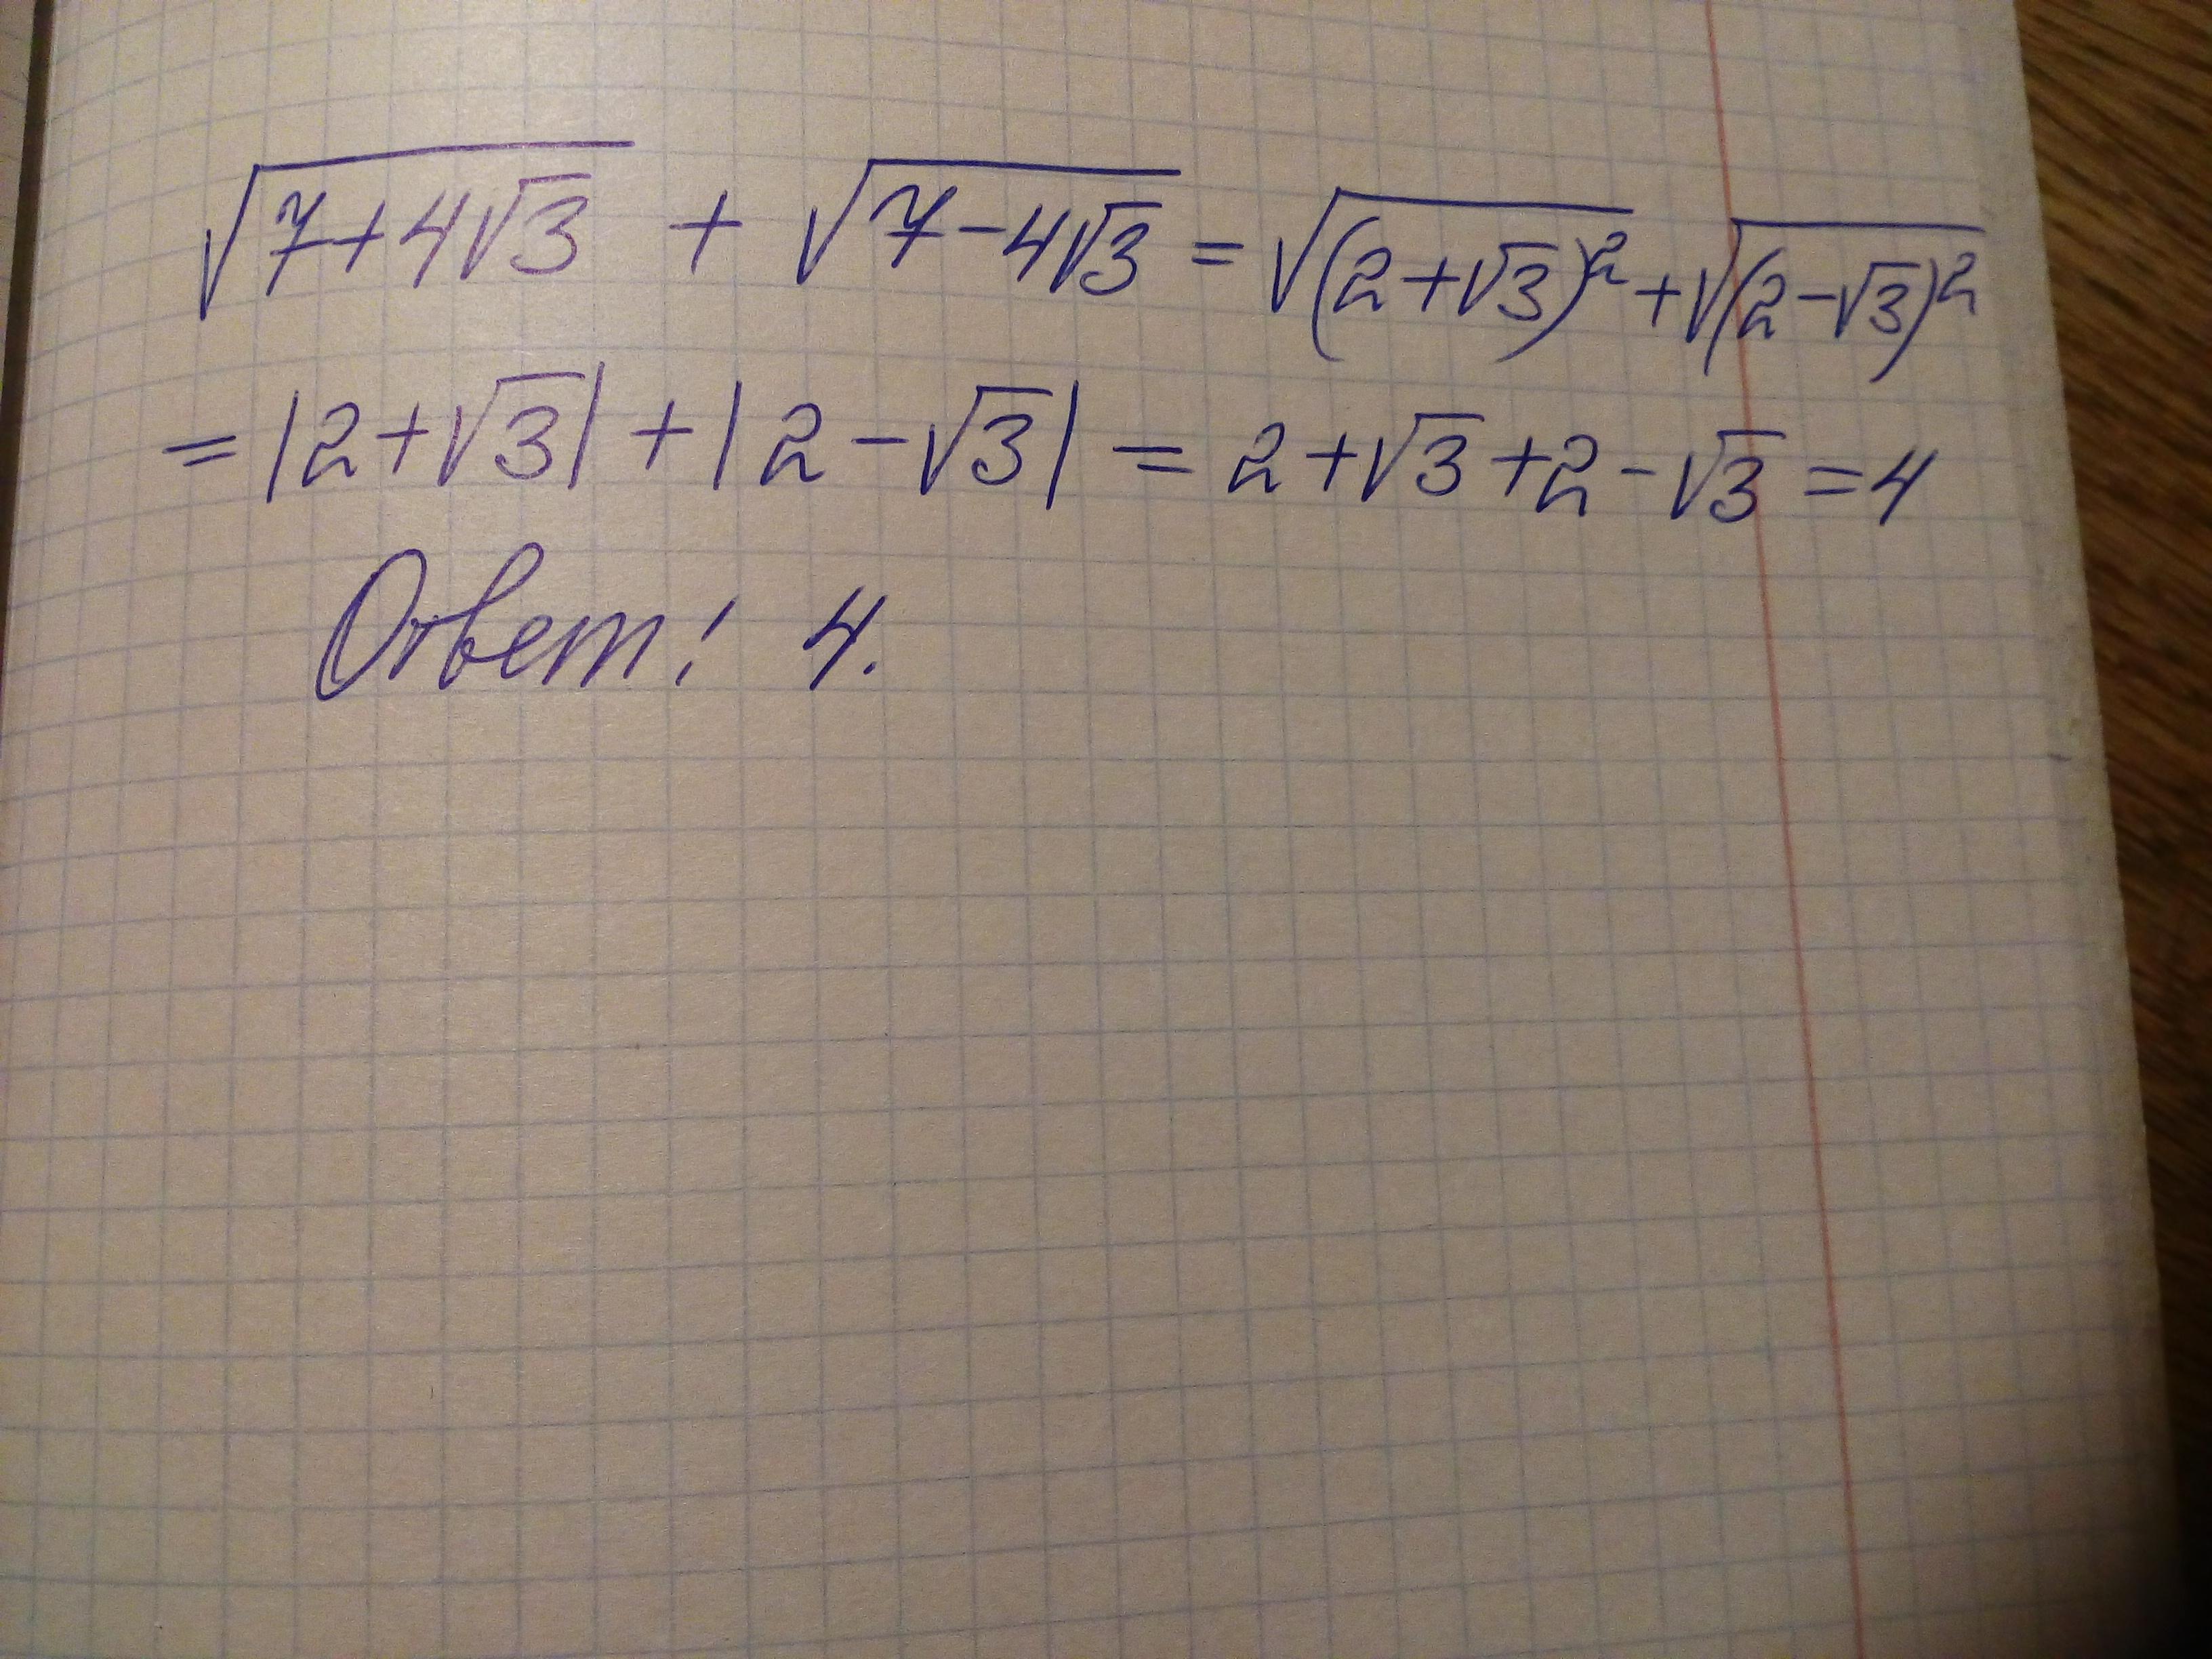 √(7+4√3) + √(7-4√3) = √((2+√3)²) + √((2-√3)²)
= |2+√3| + |2-√3| = 2+√3+2-√3 = 4
Ответ: 4.